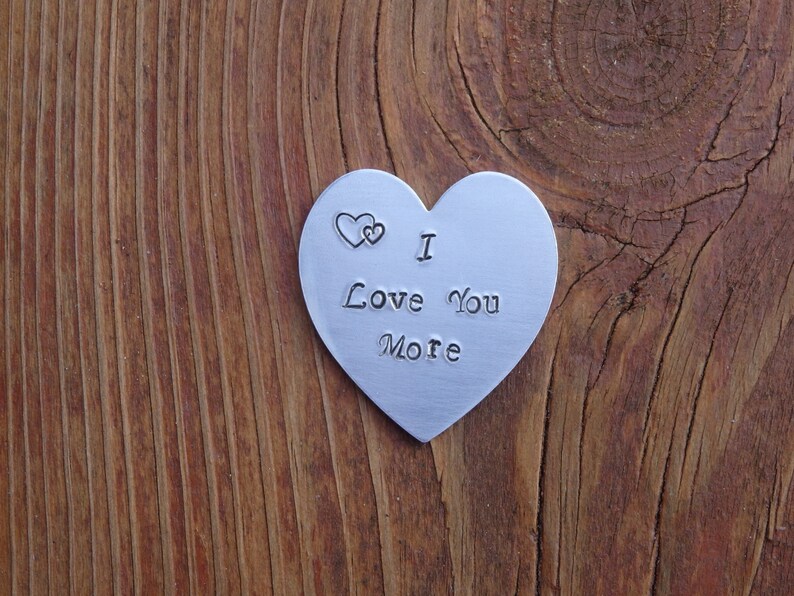 I
Love You
More